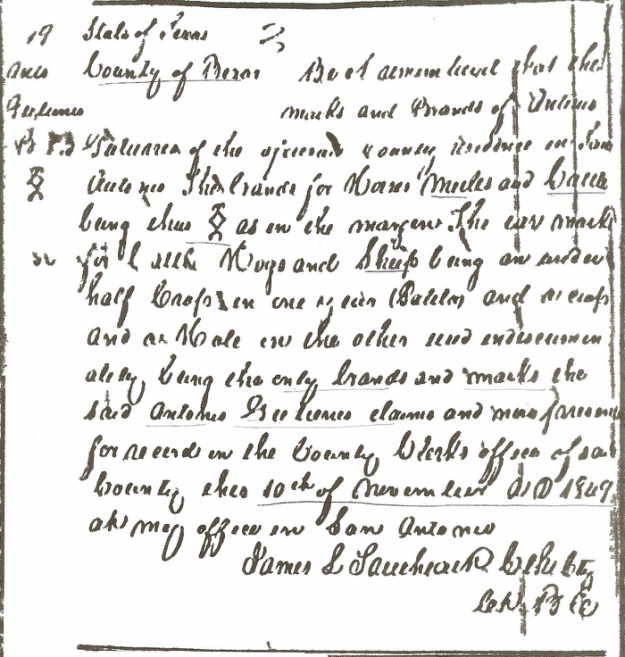 19 State of Texas
County of Bexar Be it remembered that the
marks and Brands of Antonio
of the county residence in San
Antonio The brands for Horses Mules and Cattle
being thus as in the margin. The ear marks
for Hogs and Sheep being an under
half Crop in one ear and a crop
and a Hole in the other used indiscrimin
ately, being the only brands and marks the
said Antonio claims and now presents
for record in the County Clerks office of said
County this 10th of November AD 1849
at my office in San Antonio
James L Clk Cty
B C